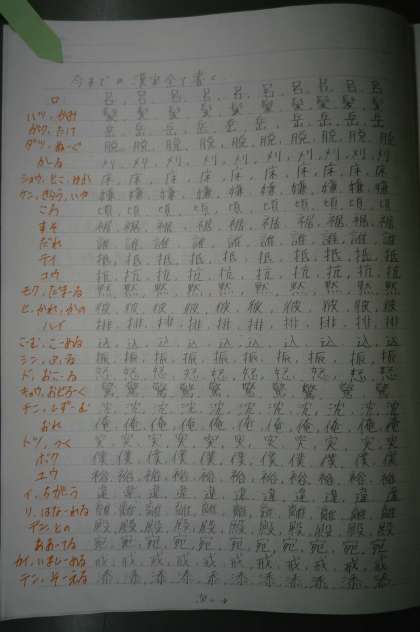 今までの漢字全て書く
ロ 呂, 呂, 呂, 呂, 呂, 呂, 呂, 呂, 呂, 呂
ハツ, かみ 髪, 髪, 髪, 髪, 髪, 髪, 髪, 髪, 髪, 髪
ガク, たけ 岳, 岳, 岳, 岳, 岳, 岳, 岳, 岳, 岳, 岳
ダツ, ぬーぐ 脱, 脱, 脱, 脱, 脱, 脱, 脱, 脱, 脱, 脱
かーる 刈, 刈, 刈, 刈, 刈, 刈, 刈, 刈, 刈, 刈
ショウ, とこ, ゆか 床, 床, 床, 床, 床, 床, 床, 床, 床, 床
ケン, きらう, いや 嫌, 嫌, 嫌, 嫌, 嫌, 嫌, 嫌, 嫌, 嫌, 嫌
ころ 頃, 頃, 頃, 頃, 頃, 頃, 頃, 頃, 頃, 頃
すそ 裾, 裾, 裾, 裾, 裾, 裾, 裾, 裾, 裾, 裾
だれ 誰, 誰, 誰, 誰, 誰, 誰, 誰, 誰, 誰, 誰
テイ 抵, 抵, 抵, 抵, 抵, 抵, 抵, 抵, 抵, 抵
コウ 抗, 抗, 抗, 抗, 抗, 抗, 抗, 抗, 抗, 抗
モク, だまーる 黙, 黙, 黙, 黙, 黙, 黙, 黙, 黙, 黙, 黙
ヒ, かれ, かの 彼, 彼, 彼, 彼, 彼, 彼, 彼, 彼, 彼, 彼
ハイ 排, 排, 排, 排, 排, 排, 排, 排, 排, 排
こーむ, こーめる 込, 込, 込, 込, 込, 込, 込, 込, 込, 込
シン, ふーる 振, 振, 振, 振, 振, 振, 振, 振, 振, 振
ド, おこーる 怒, 怒, 怒, 怒, 怒, 怒, 怒, 怒, 怒, 怒
キョウ, おどろーく 驚, 驚, 驚, 驚, 驚, 驚, 驚, 驚, 驚, 驚
チン, しずーむ 沈, 沈, 沈, 沈, 沈, 沈, 沈, 沈, 沈, 沈
おれ 俺, 俺, 俺, 俺, 俺, 俺, 俺, 俺, 俺, 俺
トツ, つく 突, 突, 突, 突, 突, 突, 突, 突, 突, 突
ボク 僕, 僕, 僕, 僕, 僕, 僕, 僕, 僕, 僕, 僕
ユウ 裕, 裕, 裕, 裕, 裕, 裕, 裕, 裕, 裕, 裕
イ, ちがう 違, 違, 違, 違, 違, 違, 違, 違, 違, 違
リ, はなーれる 離, 離, 離, 離, 離, 離, 離, 離, 離, 離
デン, との 殿, 殿, 殿, 殿, 殿, 殿, 殿, 殿, 殿, 殿
あてーる 宛, 宛, 宛, 宛, 宛, 宛, 宛, 宛, 宛, 宛
カイ, いましーめる 戒, 戒, 戒, 戒, 戒, 戒, 戒, 戒, 戒, 戒
テン, そーえる 添, 添, 添, 添, 添, 添, 添, 添, 添, 添
次へ→